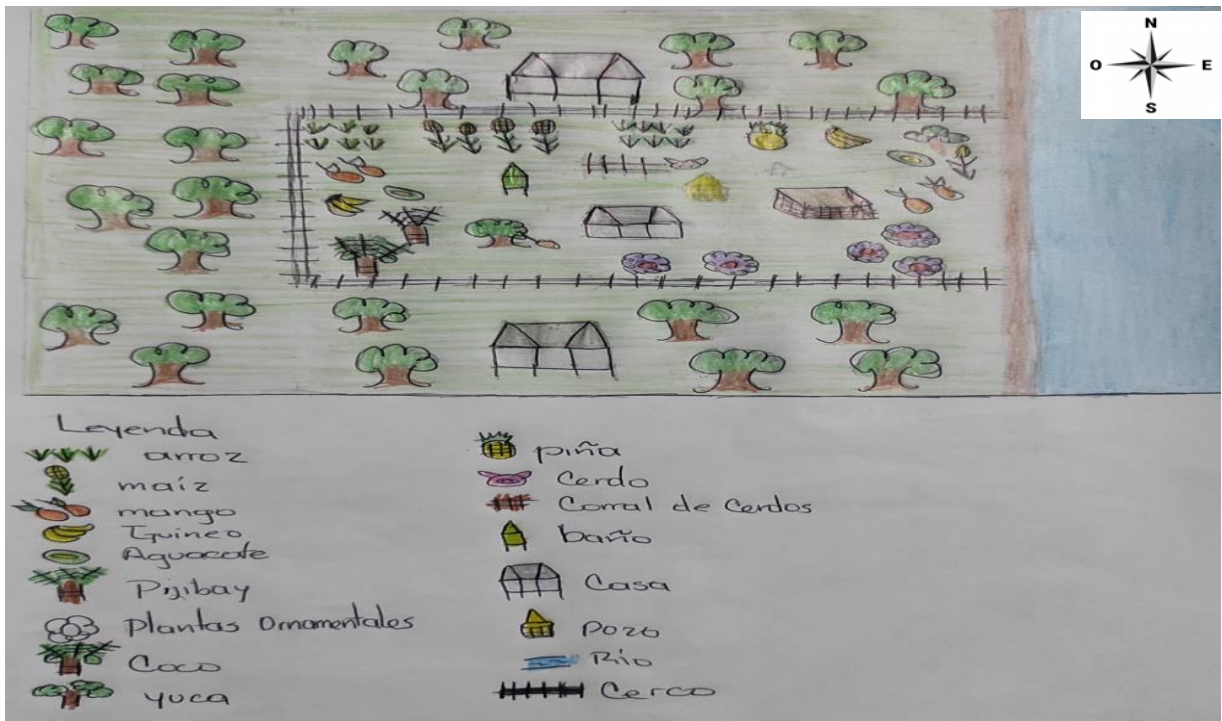 N
O E
S
Leyenda
arroz
maíz
mango
Guineo
Aguacate
Pijibay
Plantas Ornamentales
Coco
yuca
piña
Cerdo
Corral de Cerdos
baño
Casa
Pozo
Río
Cerco